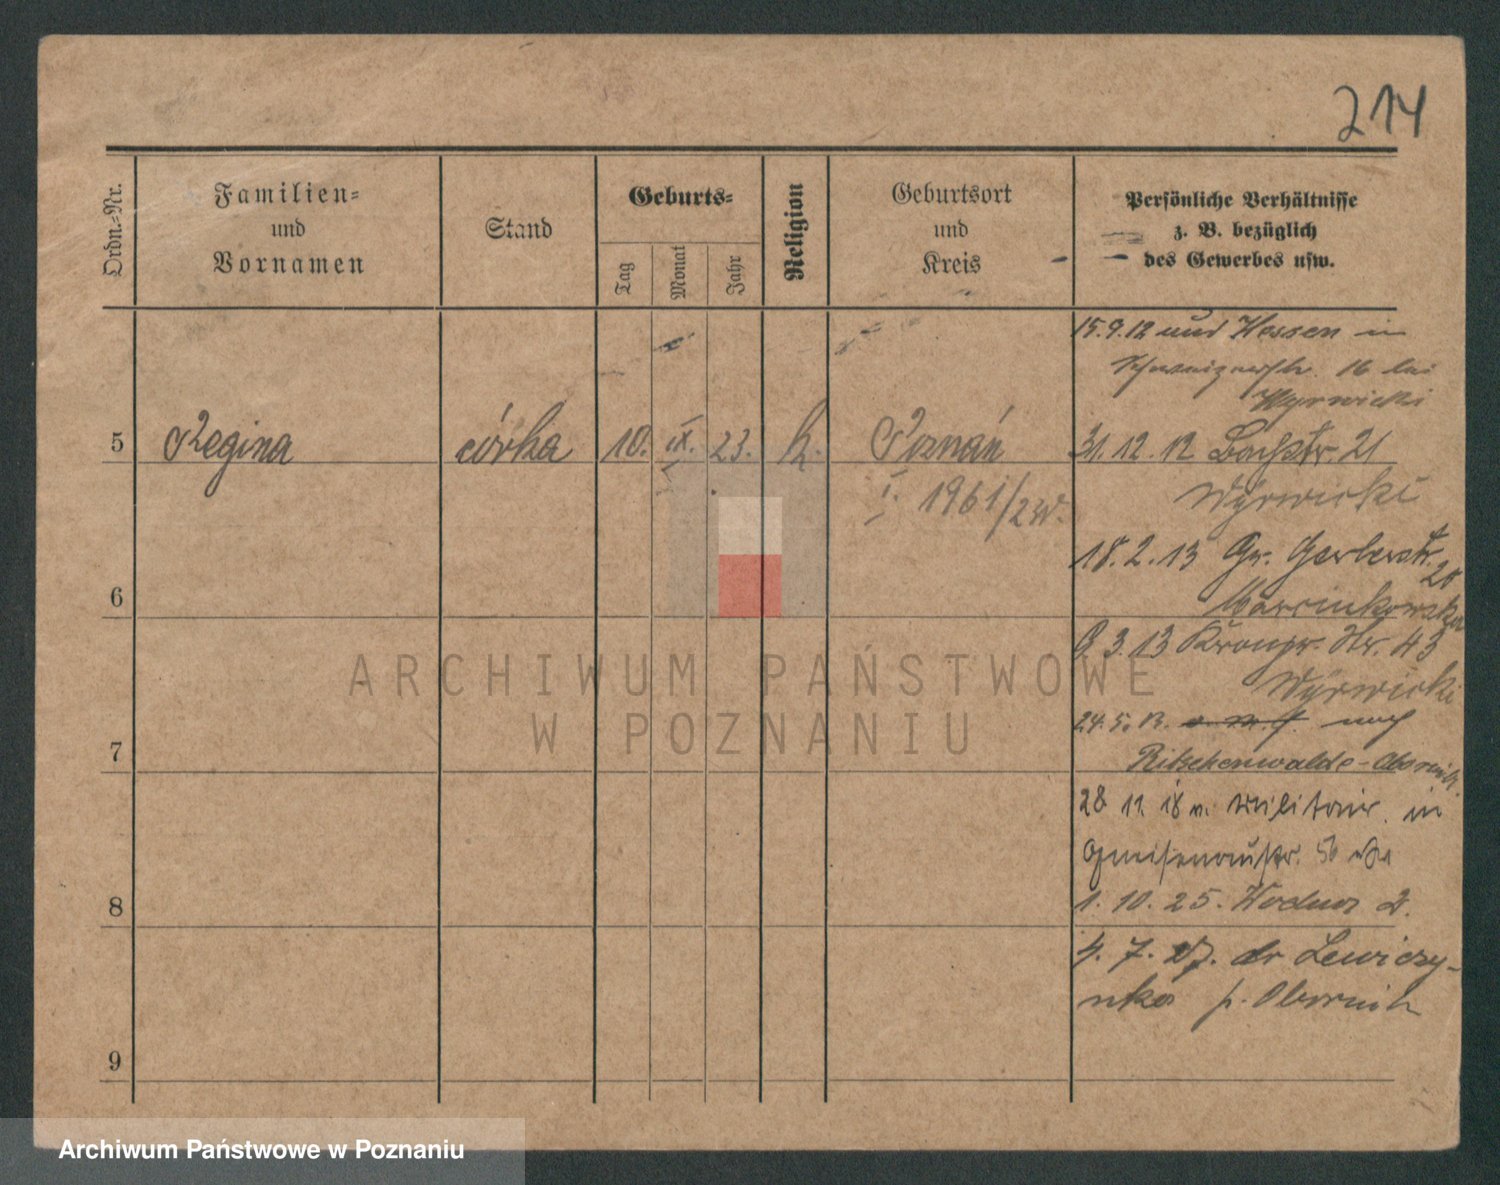 214
Ordn.-Nr.
Familien-
und
Vornamen
Stand
Geburts-
Tag
Monat
Jahr
Religion
Geburtsort
und
Kreis
Persönliche Verhältnisse
z. B. bezüglich
des Gewerbes usw.
15.9.12 und Hessen in
16 bei
Wyrwicki
5 Regina córka 10. IX. 23. k. Poznań
I. 1961/2W.
31.12.12 Bachstr. 21
Wyrwicki
18.2.13 Gr. Gerberstr.
Marcinkowska
6
9.3.13 Kronpr. Str. 43
Wyrwicki
24.5.13. nach
Ritschenwalde-Obornik.
7
28 11. 18 v. Militair. in
Gneisenaustr.
1. 10. 25.
8
4. 7. 27. do Lewiczy-
nka p. Obornik
9
ARCHIWUM PAŃSTWOWE
W POZNANIU
Archiwum Państwowe w Poznaniu